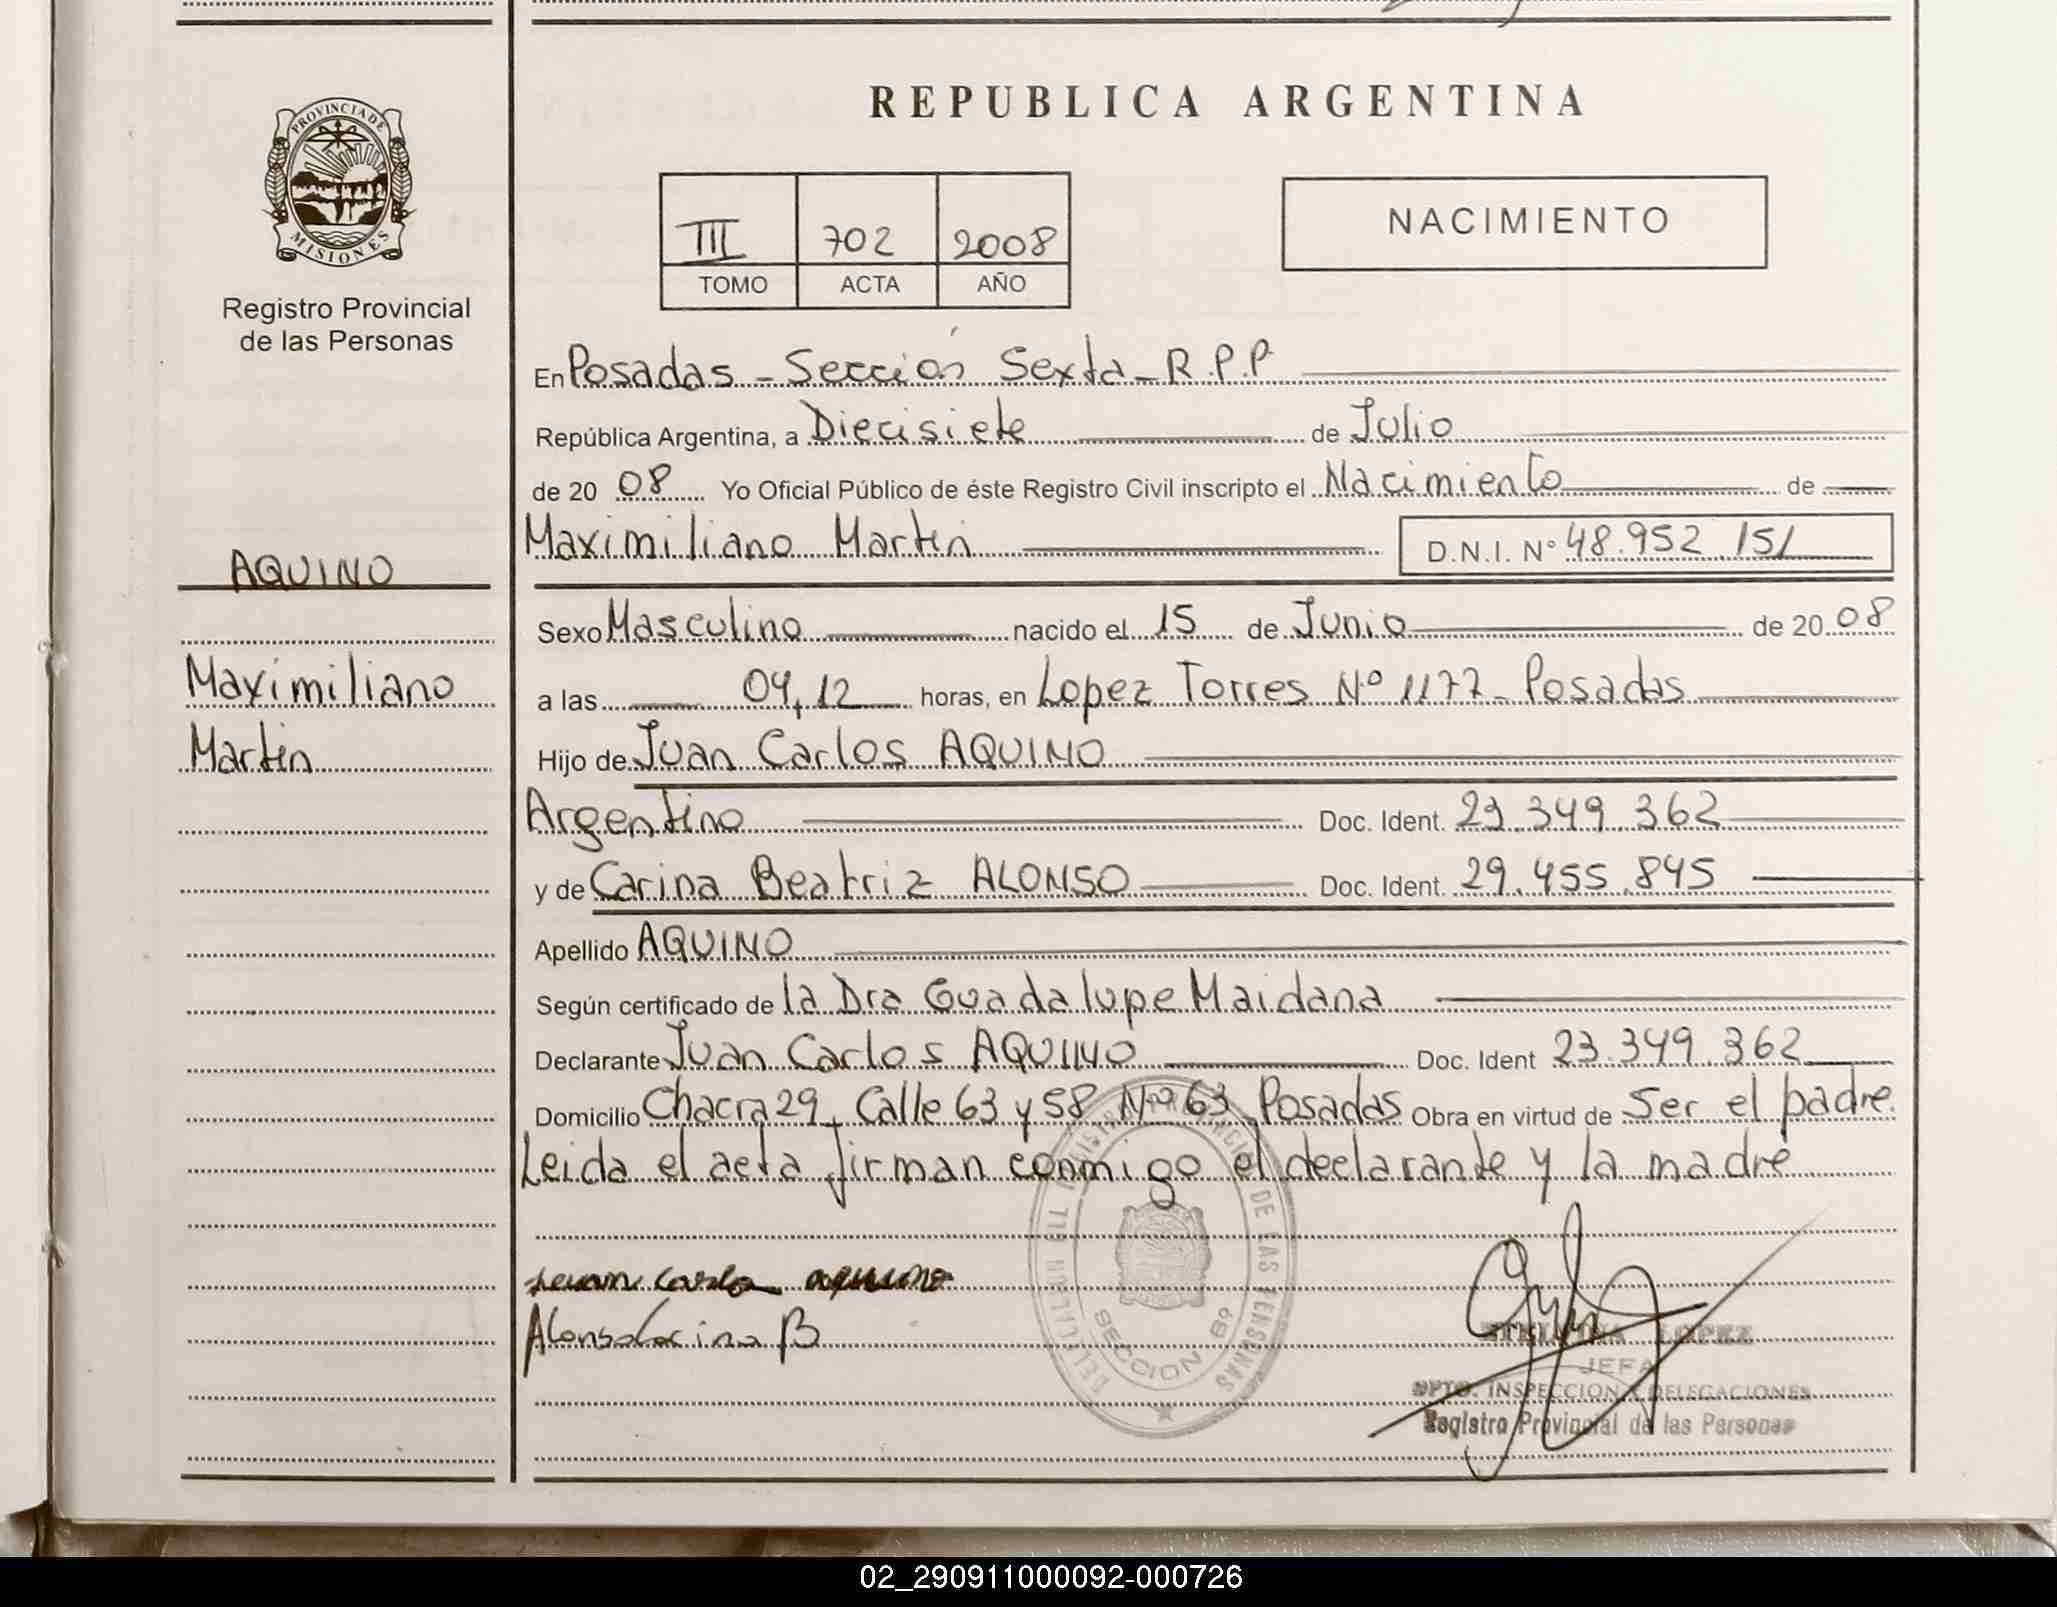 REPUBLICA ARGENTINA
PROVINCIA DE
MISIONES
Registro Provincial
de las Personas
III 702 2008
TOMO ACTA AÑO
NACIMIENTO
En Posadas - Sección Sexta - R.P.P.
República Argentina, a Diecisiete de Julio
de 20 08 Yo Oficial Público de éste Registro Civil inscripto el Nacimiento de
Maximiliano Martin D.N.I. Nº 48.952.151
AQUINO
Maximiliano
Martin
Sexo Masculino nacido el 15 de Junio de 20 08
a las 04,12 horas, en Lopez Torres Nº 1177 - Posadas
Hijo de Juan Carlos AQUINO
Argentino Doc. Ident. 23.349.362
y de Carina Beatriz ALONSO Doc. Ident. 29.455.845
Apellido AQUINO
Según certificado de la Dra Guadalupe Maidana
Declarante Juan Carlos AQUINO Doc. Ident 23.349.362
Domicilio Chacra 29, Calle 63 y 58 Nº 63 Posadas Obra en virtud de Ser el padre.
Leida el acta firman conmigo el declarante y la madre
Juan Carlos aquino
Alonso Carina B
SECCION 6º
LOPEZ
JEFA
DPTO. INSPECCION Y DELEGACIONES
Registro Provincial de las Personas
02_290911000092-000726